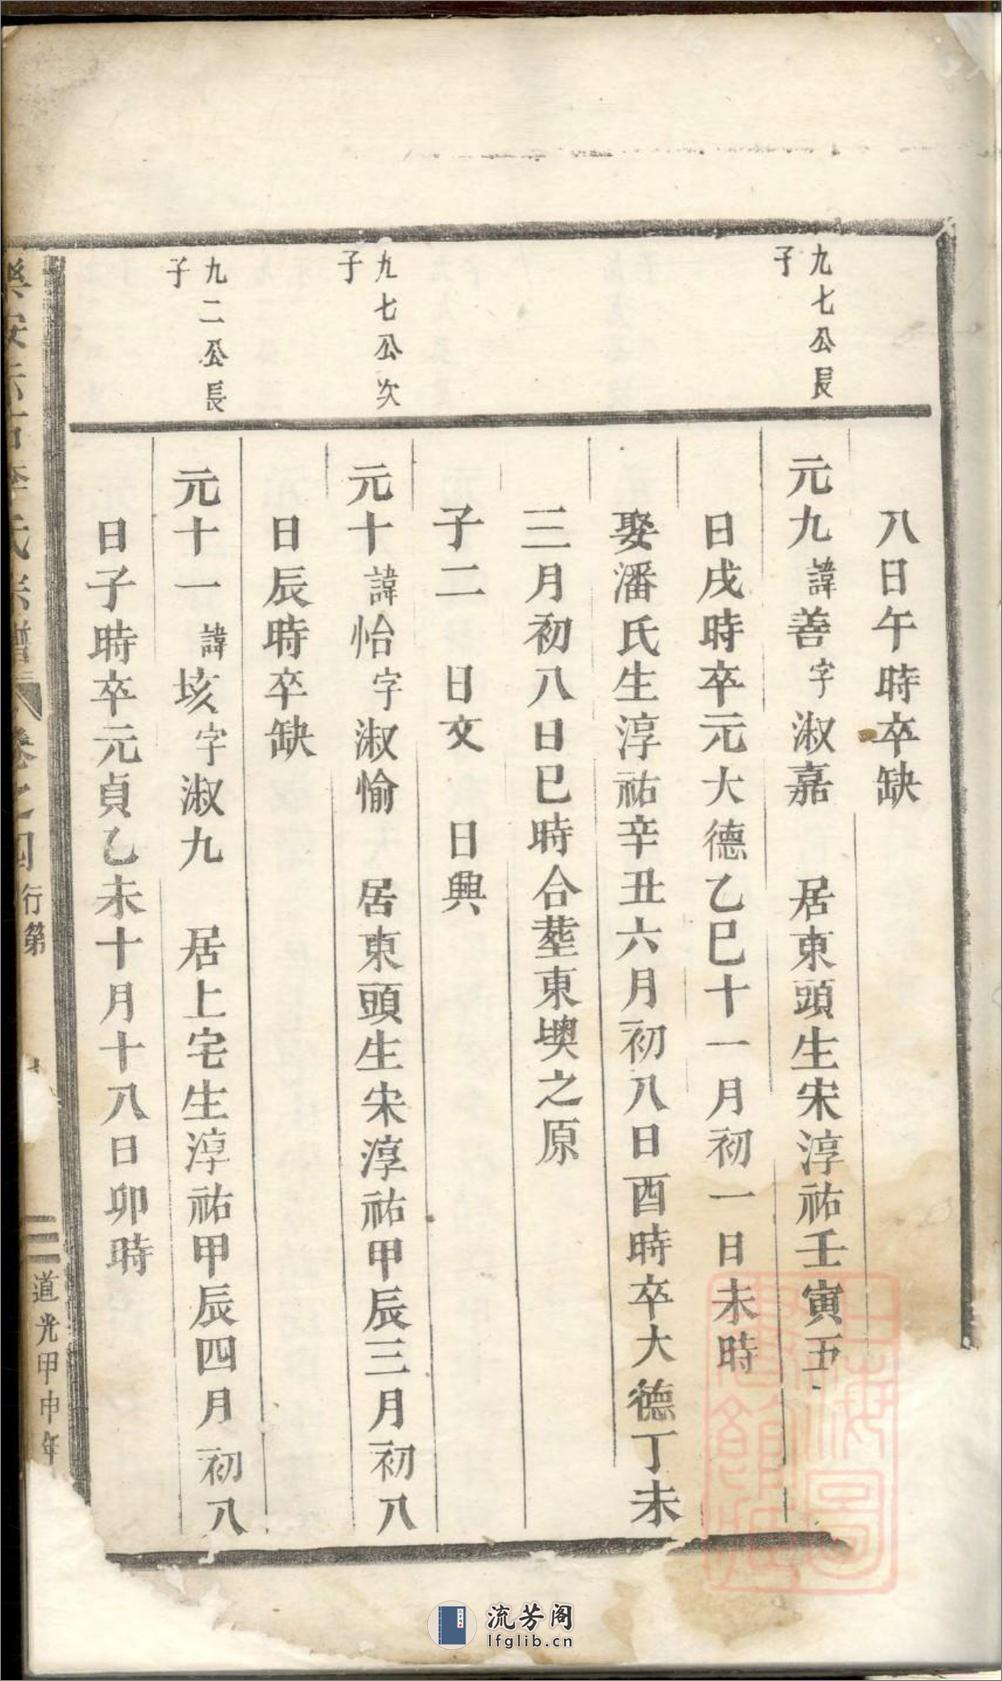 八日午時卒缺
九七公長
子
元九諱善字淑嘉　居東頭生宋淳祐壬寅五
日戌時卒元大德乙巳十一月初一日未時
娶潘氏生淳祐辛丑六月初八日酉時卒大德丁未
三月初八日巳時合塟東墺之原
子二　日文　日興
九七公次
子
元十諱怡字淑愉　居東頭生宋淳祐甲辰三月初八
日辰時卒缺
九二公長
子
元十一諱垓字淑九　居上宅生淳祐甲辰四月初八
日子時卒元貞乙未十月十八日卯時
氏宗譜 卷之四 行第 道光甲申年
上海圖書館藏
流芳阁
lfglib.cn